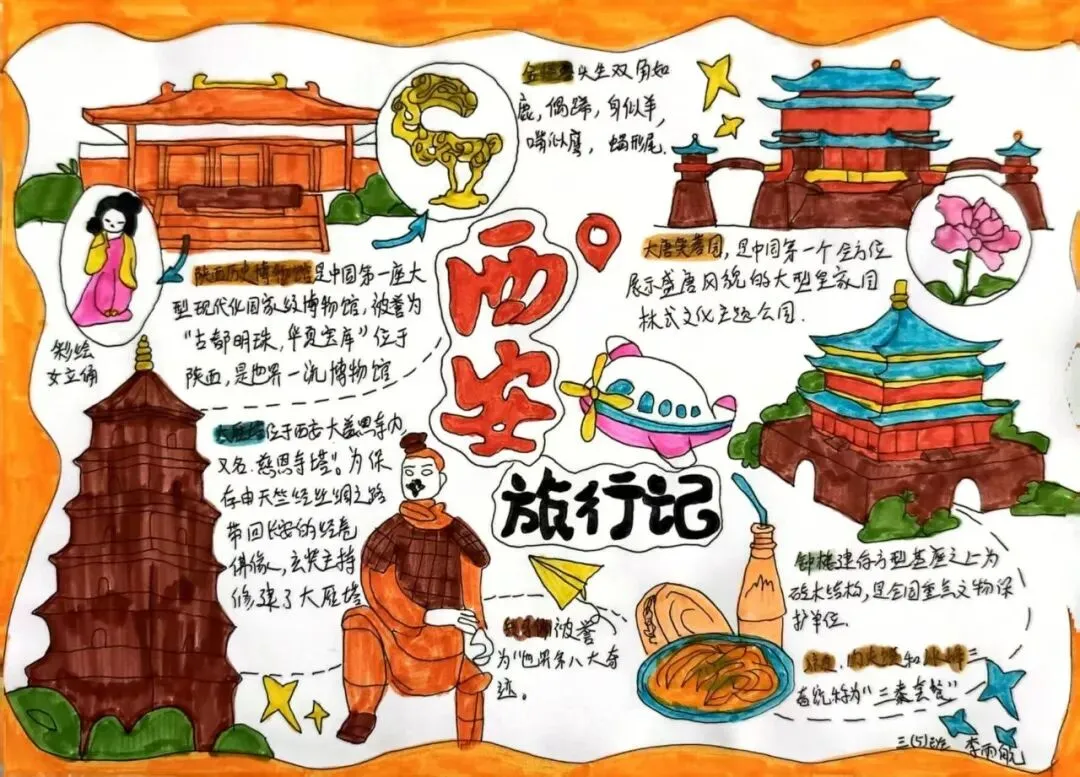 头生双角如
鹿，偶蹄，身似羊，
嘴似鹰，蝎形尾.
陕西历史博物馆是中国第一座大
型现代化国家级博物馆，被誉为
“古都明珠，华夏宝库”位于
陕西，是世界一流博物馆
彩绘
女立俑
大唐芙蓉园，是中国第一个全方位
展示盛唐风貌的大型皇家园
林式文化主题公园.
西安
旅行记
大雁塔位于西安大慈恩寺内，
又名.慈恩寺塔”。为保
存由天竺经丝绸之路
带回长安的经卷
佛像，玄奘主持
修建了大雁塔
被誉
为“世界第八大奇
迹。
钟楼建存方型基座之上为
砖木结构，是全国重点文物保
护单位.
凉皮，肉夹馍和冰峰
统称为“三秦套餐”
三(5)班 李雨航